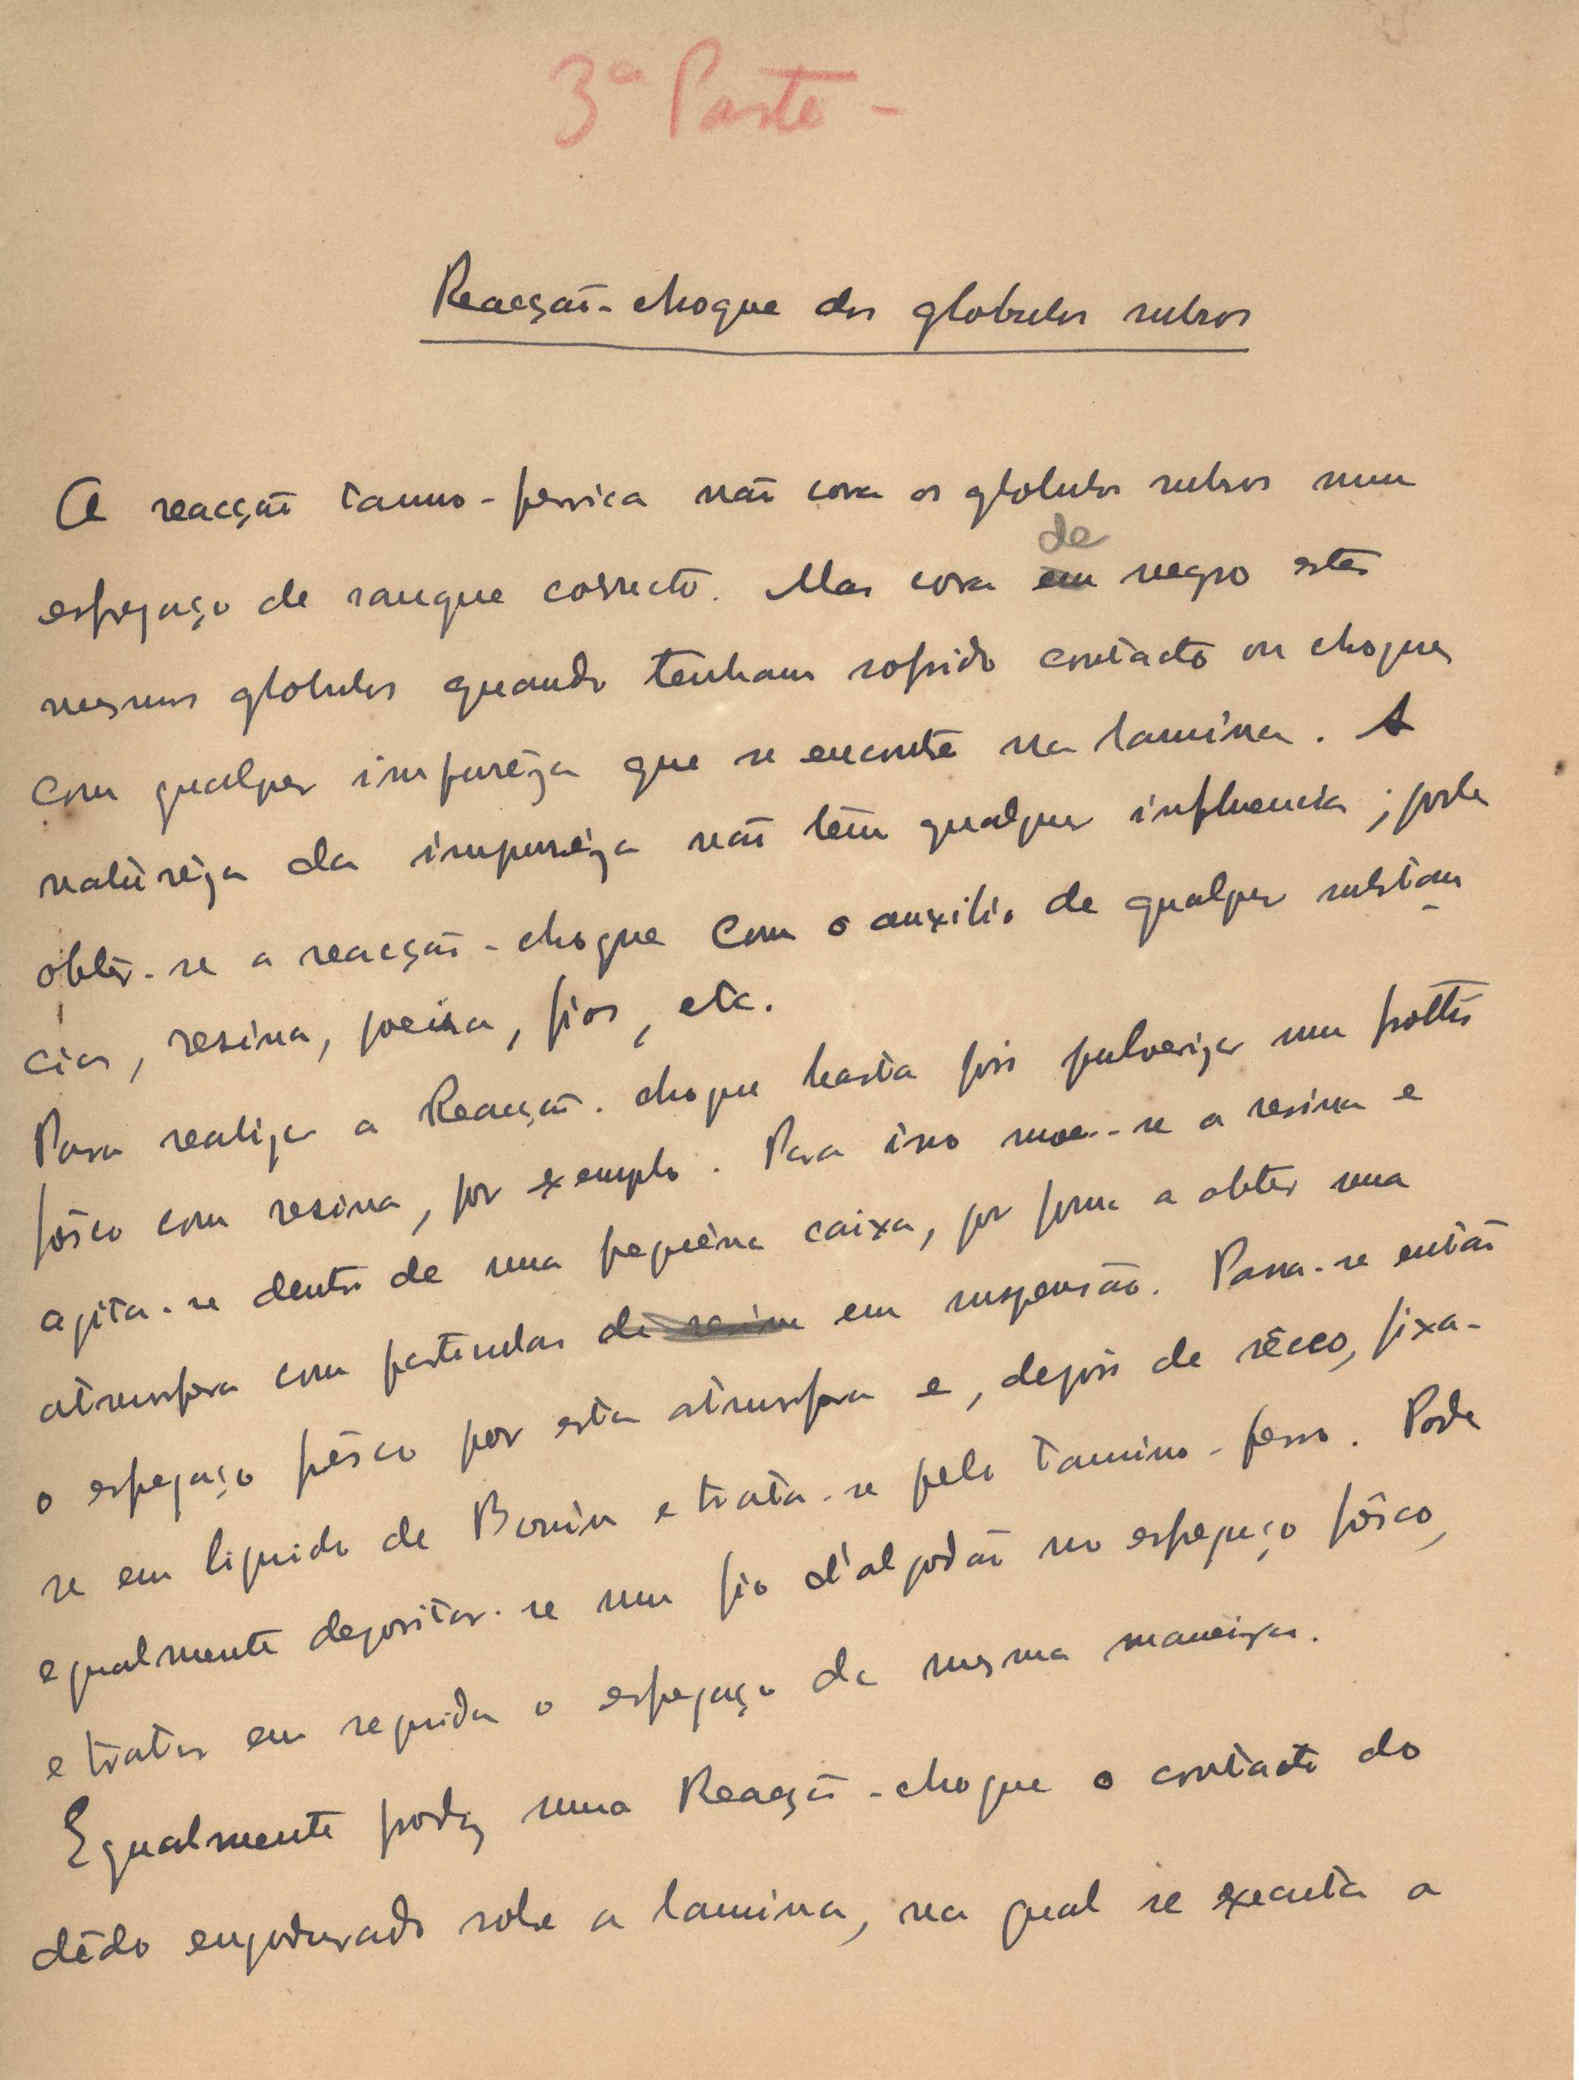 3ª Parte -
Reacção-choque dos globulos rubros
A reacção tanno-ferrica não cora os globulos rubros num
de
esfregaço de sangue correcto. Mas cora em negro estes
mesmos globulos quando tenham sofrido contacto ou choques
com qualquer impurêza que se encontre na lamina. A
naturêza da impurêza não têm qualquer influencia; pode
obter-se a reacção-choque com o auxilio de qualquer substan
cias, resina, poeira, fios, etc.
Para realizar a Reacção-choque basta pois pulverizar um frottis
fôsco com resina, por exemplo. Para isso moe-se a resina e
agita-se dentro de uma pequêna caixa, por forma a obter uma
atmosfera com particulas de resina em suspensão. Passa-se então
o esfregaço fôsco por esta atmosfera e, depois de sêcco, fixa-
se em liquido de Bouin e trata-se pelo tanino-ferro. Pode
egualmente depositar-se um fio d'algodão no esfregaço fôsco,
e tratar em seguida o esfregaço da mesma maneira.
Egualmente produz uma Reacção-choque o contacto do
dêdo engordurado sobre a lamina, na qual se executa o